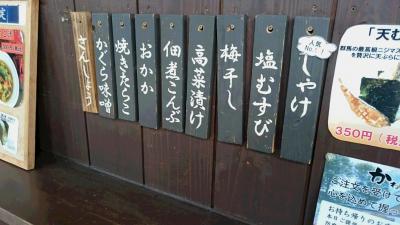 人気
No.1!
しゃけ
塩むすび
梅干し
高菜漬け
佃煮こんぶ
おかか
焼きたらこ
かぐら味噌
さんしょう
「天む
群馬の最高級ニジマス
を贅沢に天ぷらに
350円(税
かわ
ご注文を受けて
心を込めて握っ
お持ち帰りのお